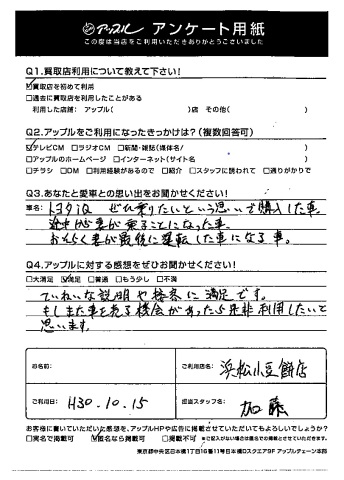 アップル アンケート用紙
この度は当店をご利用いただきありがとうございました
Q1.買取店利用について教えて下さい!
☑買取店を初めて利用
□過去に買取店を利用したことがある
利用した店舗: アップル( )店 その他( )
Q2.アップルをご利用になったきっかけは?(複数回答可)
☑テレビCM □ラジオCM □新聞・雑誌(媒体名/ )
□アップルのホームページ □インターネット(サイト名 )
□チラシ □DM □利用経験があるので □紹介 □スタッフに誘われて □通りがかりで
Q3.あなたと愛車との思い出をお聞かせください!
車名: トヨタiQ ぜひ乗りたいという思いで購入した車。
途中から妻が乗ることになった車。
おそらく妻が最後に運転した車になる車。
Q4.アップルに対する感想をぜひお聞かせください!
□大満足 ☑満足 □普通 □もう少し □不満
ていねいな説明や接客に満足です。
もしまた車を売る機会があったら是非利用したいと
思います。
お名前:
ご利用店名: 浜松小豆餅店
ご利用日: H30.10.15
担当スタッフ名: 加藤
お客様に書いていただいた感想を、アップルHPや広告に掲載させていただいてもよろしいでしょうか?
□実名で掲載可 ☑匿名なら掲載可 □掲載不可 ※ご記入がない場合は匿名での掲載とさせていただきます。
東京都中央区日本橋1丁目16番11号日本橋Dスクエア9F アップルチェーン本部